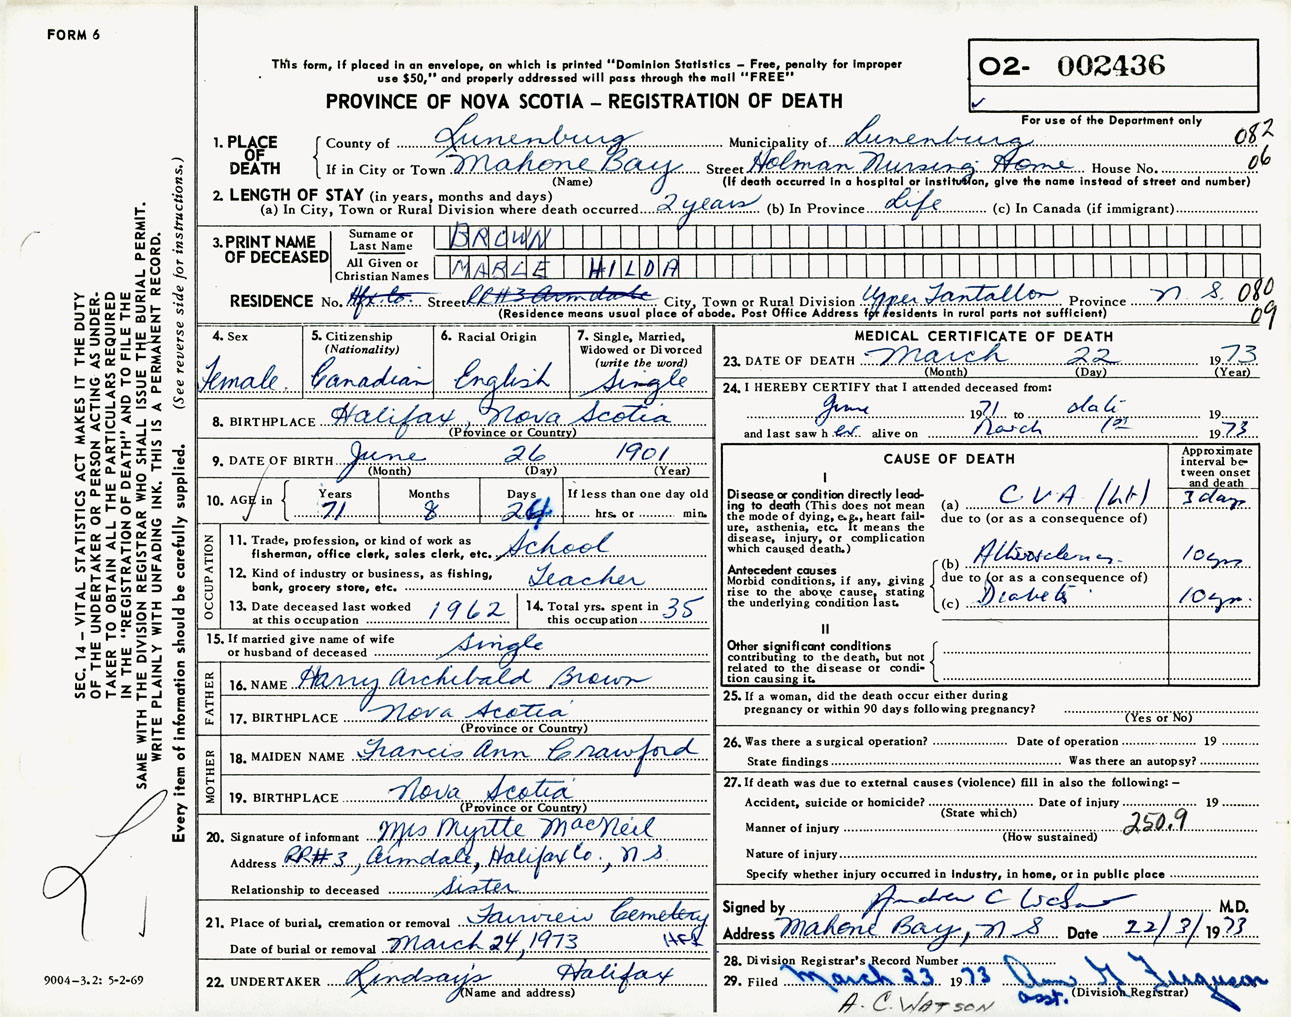 FORM 6
This form, if placed in an envelope, on which is printed "Dominion Statistics – Free, penalty for improper
use $50," and properly addressed will pass through the mail "FREE"
O2- 002436
PROVINCE OF NOVA SCOTIA – REGISTRATION OF DEATH
For use of the Department only
SEC. 14 – VITAL STATISTICS ACT MAKES IT THE DUTY
OF THE UNDERTAKER OR PERSON ACTING AS UNDER-
TAKER TO OBTAIN ALL THE PARTICULARS REQUIRED
IN THE "REGISTRATION OF DEATH" AND TO FILE THE
SAME WITH THE DIVISION REGISTRAR WHO SHALL ISSUE THE BURIAL PERMIT.
WRITE PLAINLY WITH UNFADING INK. THIS IS A PERMANENT RECORD.
Every item of information should be carefully supplied. (See reverse side for instructions.)
1. PLACE OF DEATH
County of Lunenburg Municipality of Lunenburg 082
If in City or Town Mahone Bay Street Holman Nursing Home House No. 06
(Name) (If death occurred in a hospital or institution, give the name instead of street and number)
2. LENGTH OF STAY (in years, months and days)
(a) In City, Town or Rural Division where death occurred 2 years (b) In Province Life (c) In Canada (if immigrant)
3. PRINT NAME OF DECEASED
Surname or Last Name BROWN
All Given or Christian Names MARLE HILDA
RESIDENCE No. Hfx Co. Street RR#3 Armdale City, Town or Rural Division Upper Tantallon Province N.S. 080
(Residence means usual place of abode. Post Office Address for residents in rural parts not sufficient) 09
4. Sex
Female
5. Citizenship
(Nationality)
Canadian
6. Racial Origin
English
7. Single, Married,
Widowed or Divorced
(write the word)
Single
8. BIRTHPLACE Halifax, Nova Scotia
(Province or Country)
9. DATE OF BIRTH June 26 1901
(Month) (Day) (Year)
10. AGE in
Years Months Days If less than one day old
71 8 24 hrs. or min.
OCCUPATION
11. Trade, profession, or kind of work as
fisherman, office clerk, sales clerk, etc. School
12. Kind of industry or business, as fishing,
bank, grocery store, etc. Teacher
13. Date deceased last worked
at this occupation 1962
14. Total yrs. spent in
this occupation 35
15. If married give name of wife
or husband of deceased Single
FATHER
16. NAME Harry Archibald Brown
17. BIRTHPLACE Nova Scotia
(Province or Country)
MOTHER
18. MAIDEN NAME Francis Ann Crawford
19. BIRTHPLACE Nova Scotia
(Province or Country)
20. Signature of informant Mrs Myrtle MacNeil
Address RR#3, Armdale, Halifax Co., N.S.
Relationship to deceased Sister
21. Place of burial, cremation or removal Fairview Cemetery
Date of burial or removal March 24, 1973 HFX
22. UNDERTAKER Lindsay's Halifax
(Name and address)
9004-3.2: 5-2-69
MEDICAL CERTIFICATE OF DEATH
23. DATE OF DEATH March 22 1973
(Month) (Day) (Year)
24. I HEREBY CERTIFY that I attended deceased from:
June 1971 to date 19
and last saw her alive on March 1st 1973
CAUSE OF DEATH
Approximate
interval be-
tween onset
and death
I
Disease or condition directly lead-
ing to death (This does not mean
the mode of dying, e.g., heart fail-
ure, asthenia, etc. It means the
disease, injury, or complication
which caused death.)
(a) C.V.A. (Lt) 3 days
due to (or as a consequence of)
(b) Atherosclerosis 10 yrs
Antecedent causes
Morbid conditions, if any, giving
rise to the above cause, stating
the underlying condition last.
due to (or as a consequence of)
(c) Diabetes 10 yrs.
II
Other significant conditions
contributing to the death, but not
related to the disease or condi-
tion causing it.
25. If a woman, did the death occur either during
pregnancy or within 90 days following pregnancy?
(Yes or No)
26. Was there a surgical operation? Date of operation 19
State findings Was there an autopsy?
27. If death was due to external causes (violence) fill in also the following: –
Accident, suicide or homicide? Date of injury 19
(State which)
Manner of injury 250.9
(How sustained)
Nature of injury
Specify whether injury occurred in industry, in home, or in public place
Signed by Andrew C Watson M.D.
Address Mahone Bay, N S Date 22/3/1973
28. Division Registrar's Record Number
29. Filed March 23 1973 Ann G Ferguson
asst. (Division Registrar)
A. C. WATSON